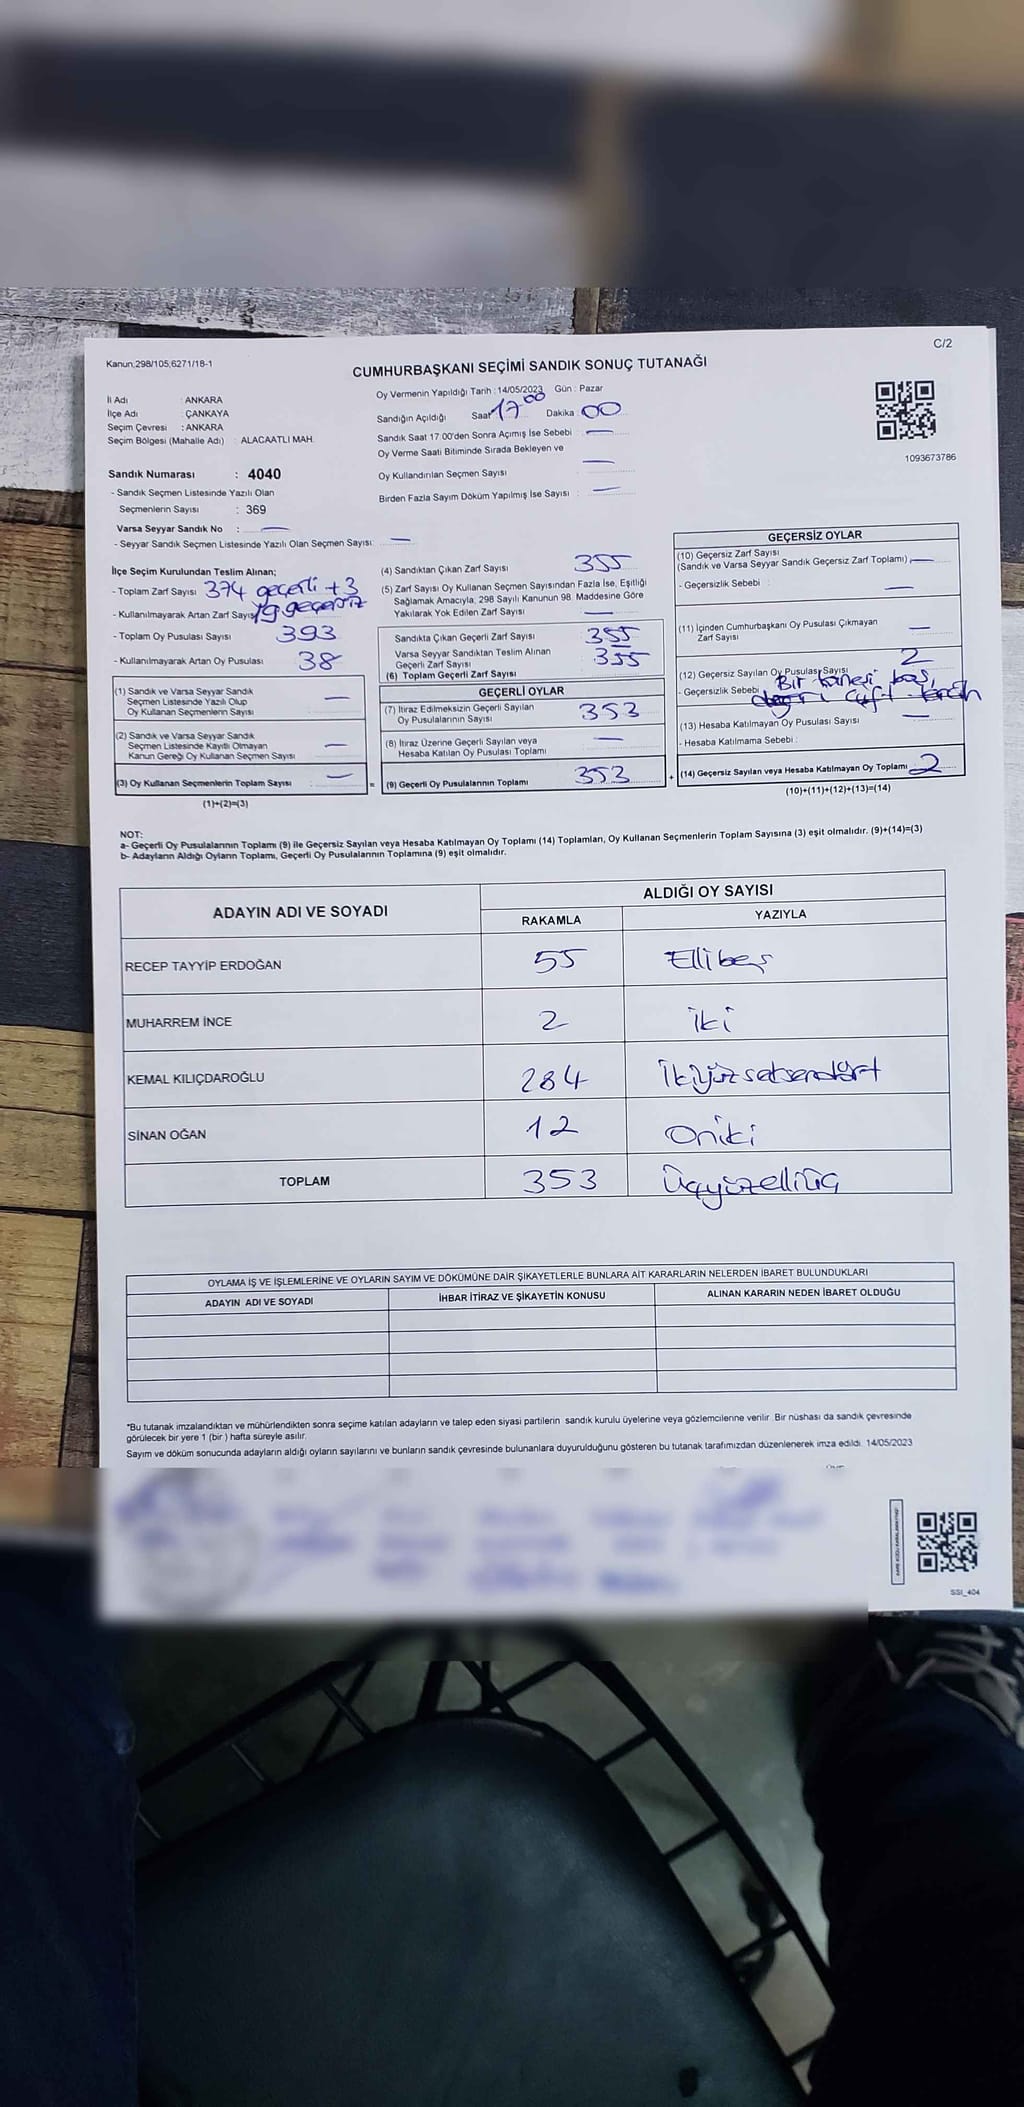 C/2
Kanun,298/105,6271/18-1
CUMHURBAŞKANI SEÇİMİ SANDIK SONUÇ TUTANAĞI
İl Adı : ANKARA
İlçe Adı : ÇANKAYA
Seçim Çevresi : ANKARA
Seçim Bölgesi (Mahalle Adı) : ALACAATLI MAH.
Sandık Numarası : 4040
- Sandık Seçmen Listesinde Yazılı Olan
Seçmenlerin Sayısı : 369
Varsa Seyyar Sandık No : —
- Seyyar Sandık Seçmen Listesinde Yazılı Olan Seçmen Sayısı: —
Oy Vermenin Yapıldığı Tarih : 14/05/2023 Gün : Pazar
Sandığın Açıldığı Saat 17 00 Dakika : 00
Sandık Saat 17.00'den Sonra Açımış İse Sebebi : —
Oy Verme Saati Bitiminde Sırada Bekleyen ve
Oy Kullandırılan Seçmen Sayısı : —
Birden Fazla Sayım Döküm Yapılmış İse Sayısı : —
1093673786
İlçe Seçim Kurulundan Teslim Alınan;
- Toplam Zarf Sayısı 374 geçerli +3
- Kullanılmayarak Artan Zarf Sayısı 19 geçersiz
- Toplam Oy Pusulası Sayısı 393
- Kullanılmayarak Artan Oy Pusulası 38
(1) Sandık ve Varsa Seyyar Sandık
Seçmen Listesinde Yazılı Olup
Oy Kullanan Seçmenlerin Sayısı —
(2) Sandık ve Varsa Seyyar Sandık
Seçmen Listesinde Kayıtlı Olmayan
Kanun Gereği Oy Kullanan Seçmen Sayısı —
(3) Oy Kullanan Seçmenlerin Toplam Sayısı — =
(1)+(2)=(3)
(4) Sandıktan Çıkan Zarf Sayısı 355
(5) Zarf Sayısı Oy Kullanan Seçmen Sayısından Fazla İse, Eşitliği
Sağlamak Amacıyla, 298 Sayılı Kanunun 98. Maddesine Göre
Yakılarak Yok Edilen Zarf Sayısı —
Sandıkta Çıkan Geçerli Zarf Sayısı 355
Varsa Seyyar Sandıktan Teslim Alınan
Geçerli Zarf Sayısı 355
(6) Toplam Geçerli Zarf Sayısı
GEÇERLİ OYLAR
(7) İtiraz Edilmeksizin Geçerli Sayılan
Oy Pusulalarının Sayısı 353
(8) İtiraz Üzerine Geçerli Sayılan veya
Hesaba Katılan Oy Pusulası Toplamı —
(9) Geçerli Oy Pusulalarının Toplamı 353 +
GEÇERSİZ OYLAR
(10) Geçersiz Zarf Sayısı
(Sandık ve Varsa Seyyar Sandık Geçersiz Zarf Toplamı) —
- Geçersizlik Sebebi : —
(11) İçinden Cumhurbaşkanı Oy Pusulası Çıkmayan
Zarf Sayısı —
(12) Geçersiz Sayılan Oy Pusulası Sayısı 2
- Geçersizlik Sebebi Bir tanesi boş,
diğeri çift tercih
(13) Hesaba Katılmayan Oy Pusulası Sayısı —
- Hesaba Katılmama Sebebi :
(14) Geçersiz Sayılan veya Hesaba Katılmayan Oy Toplamı 2
(10)+(11)+(12)+(13)=(14)
NOT:
a- Geçerli Oy Pusulalarının Toplamı (9) ile Geçersiz Sayılan veya Hesaba Katılmayan Oy Toplamı (14) Toplamları, Oy Kullanan Seçmenlerin Toplam Sayısına (3) eşit olmalıdır. (9)+(14)=(3)
b- Adayların Aldığı Oyların Toplamı, Geçerli Oy Pusulalarının Toplamına (9) eşit olmalıdır.
ADAYIN ADI VE SOYADI ALDIĞI OY SAYISI
RAKAMLA YAZIYLA
RECEP TAYYİP ERDOĞAN 55 Ellibeş
MUHARREM İNCE 2 iki
KEMAL KILIÇDAROĞLU 284 İkiyüzseksendört
SİNAN OĞAN 12 Oniki
TOPLAM 353 Üçyüzelliüç
OYLAMA İŞ VE İŞLEMLERİNE VE OYLARIN SAYIM VE DÖKÜMÜNE DAİR ŞİKAYETLERLE BUNLARA AİT KARARLARIN NELERDEN İBARET BULUNDUKLARI
ADAYIN ADI VE SOYADI İHBAR İTİRAZ VE ŞİKAYETİN KONUSU ALINAN KARARIN NEDEN İBARET OLDUĞU
*Bu tutanak imzalandıktan ve mühürlendikten sonra seçime katılan adayların ve talep eden siyasi partilerin sandık kurulu üyelerine veya gözlemcilerine verilir. Bir nüshası da sandık çevresinde
görülecek bir yere 1 (bir) hafta süreyle asılır.
Sayım ve döküm sonucunda adayların aldığı oyların sayılarını ve bunların sandık çevresinde bulunanlara duyurulduğunu gösteren bu tutanak tarafımızdan düzenlenerek imza edildi. 14/05/2023
SSİ_404